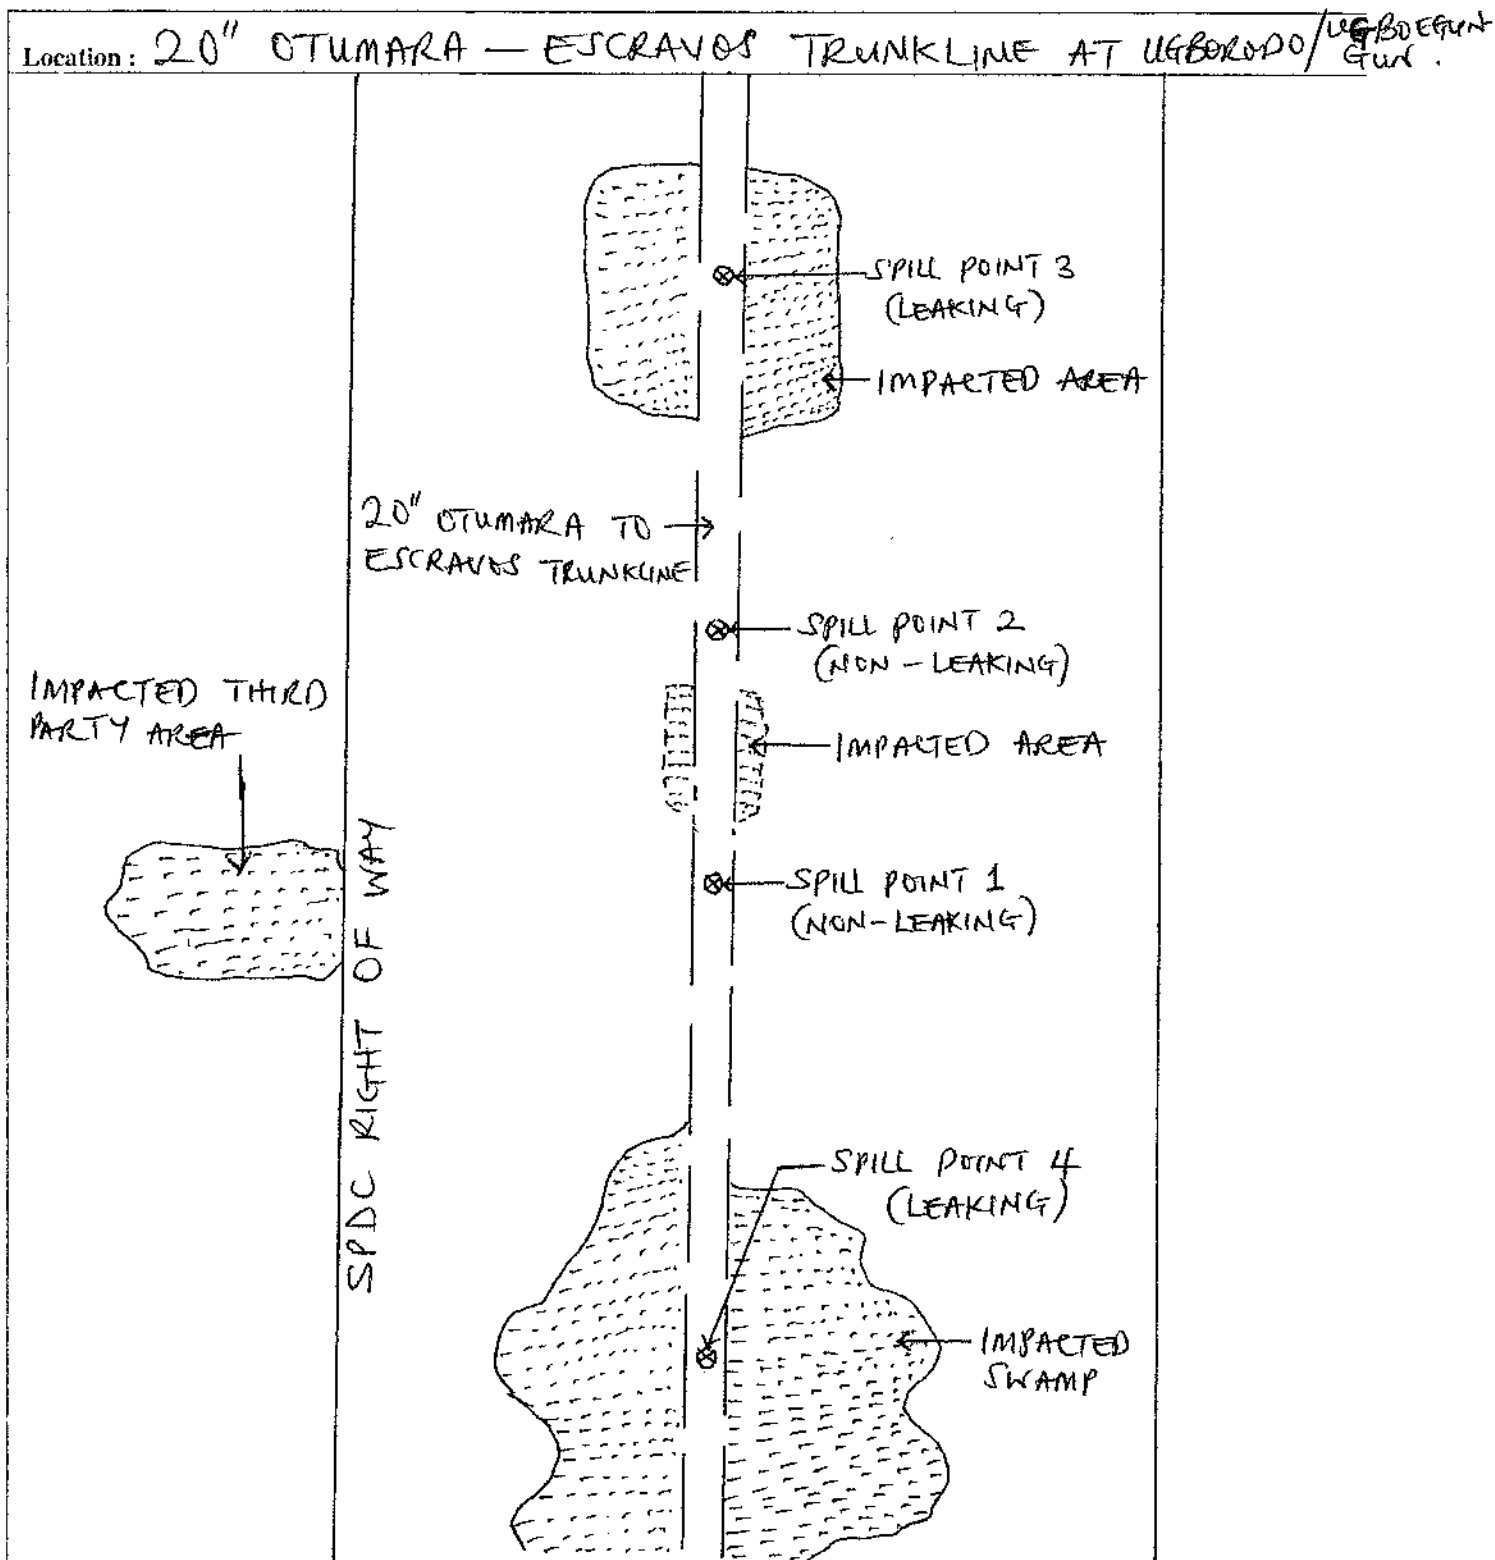 Location : 20" OTUMARA — ESCRAVOS TRUNKLINE AT UGBORODO/UGBOEGUN
GUN.
SPILL POINT 3
(LEAKING)
IMPACTED AREA
20" OTUMARA TO
ESCRAVOS TRUNKLINE
SPILL POINT 2
(NON-LEAKING)
IMPACTED THIRD
PARTY AREA
IMPACTED AREA
SPILL POINT 1
(NON-LEAKING)
SPDC RIGHT OF WAY
SPILL POINT 4
(LEAKING)
IMPACTED
SWAMP